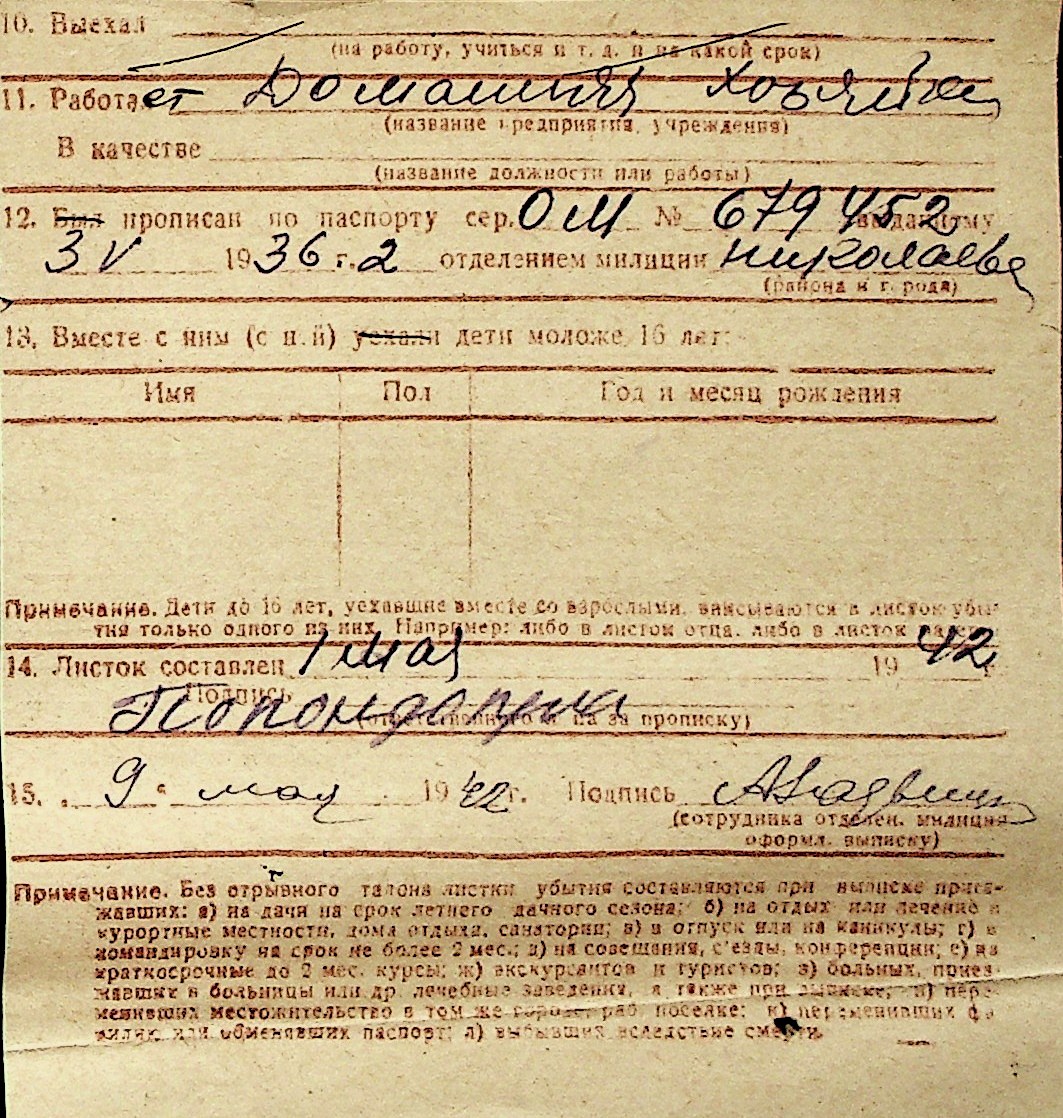 10. Выехал
(на работу, учиться и т. д. и на какой срок)
11. Работает Домашняя хозяйка
(название предприятия, учреждения)
В качестве
(название должности или работы)
12. Был прописан по паспорту сер. ОМ № 679452, выданному
3 V 1936 г. 2 отделением милиции Николаева
(района и города)
13. Вместе с ним (с ней) уехали дети моложе 16 лет:
Имя Пол Год и месяц рождения
Примечание. Дети до 16 лет, уехавшие вместе со взрослыми, вписываются в листок убы-
тия только одного из них. Например: либо в листок отца, либо в листок
14. Листок составлен 1 мая 1942 г.
Подпись
(ответственного за прописку)
15. „9“ мая 1942 г. Подпись
(сотрудника отделен. милиции
оформл. выписку)
Примечание. Без отрывного талона листки убытия составляются при выписке приез-
жавших: а) на дачи на срок летнего дачного сезона; б) на отдых или лечение в
курортные местности, дома отдыха, санатории; в) в отпуск или на каникулы; г) в
командировку на срок не более 2 мес.; д) на совещания, с'езды, конференции; е) на
краткосрочные до 2 мес. курсы; ж) экскурсантов и туристов; з) больных, приез-
жавших в больницы или др. лечебные заведения, а также при выписке; и) пере-
менивших местожительство в том же городе, раб. поселке; к) переменивших фа-
милию или обменявших паспорт; л) выбывших вследствие смерти.